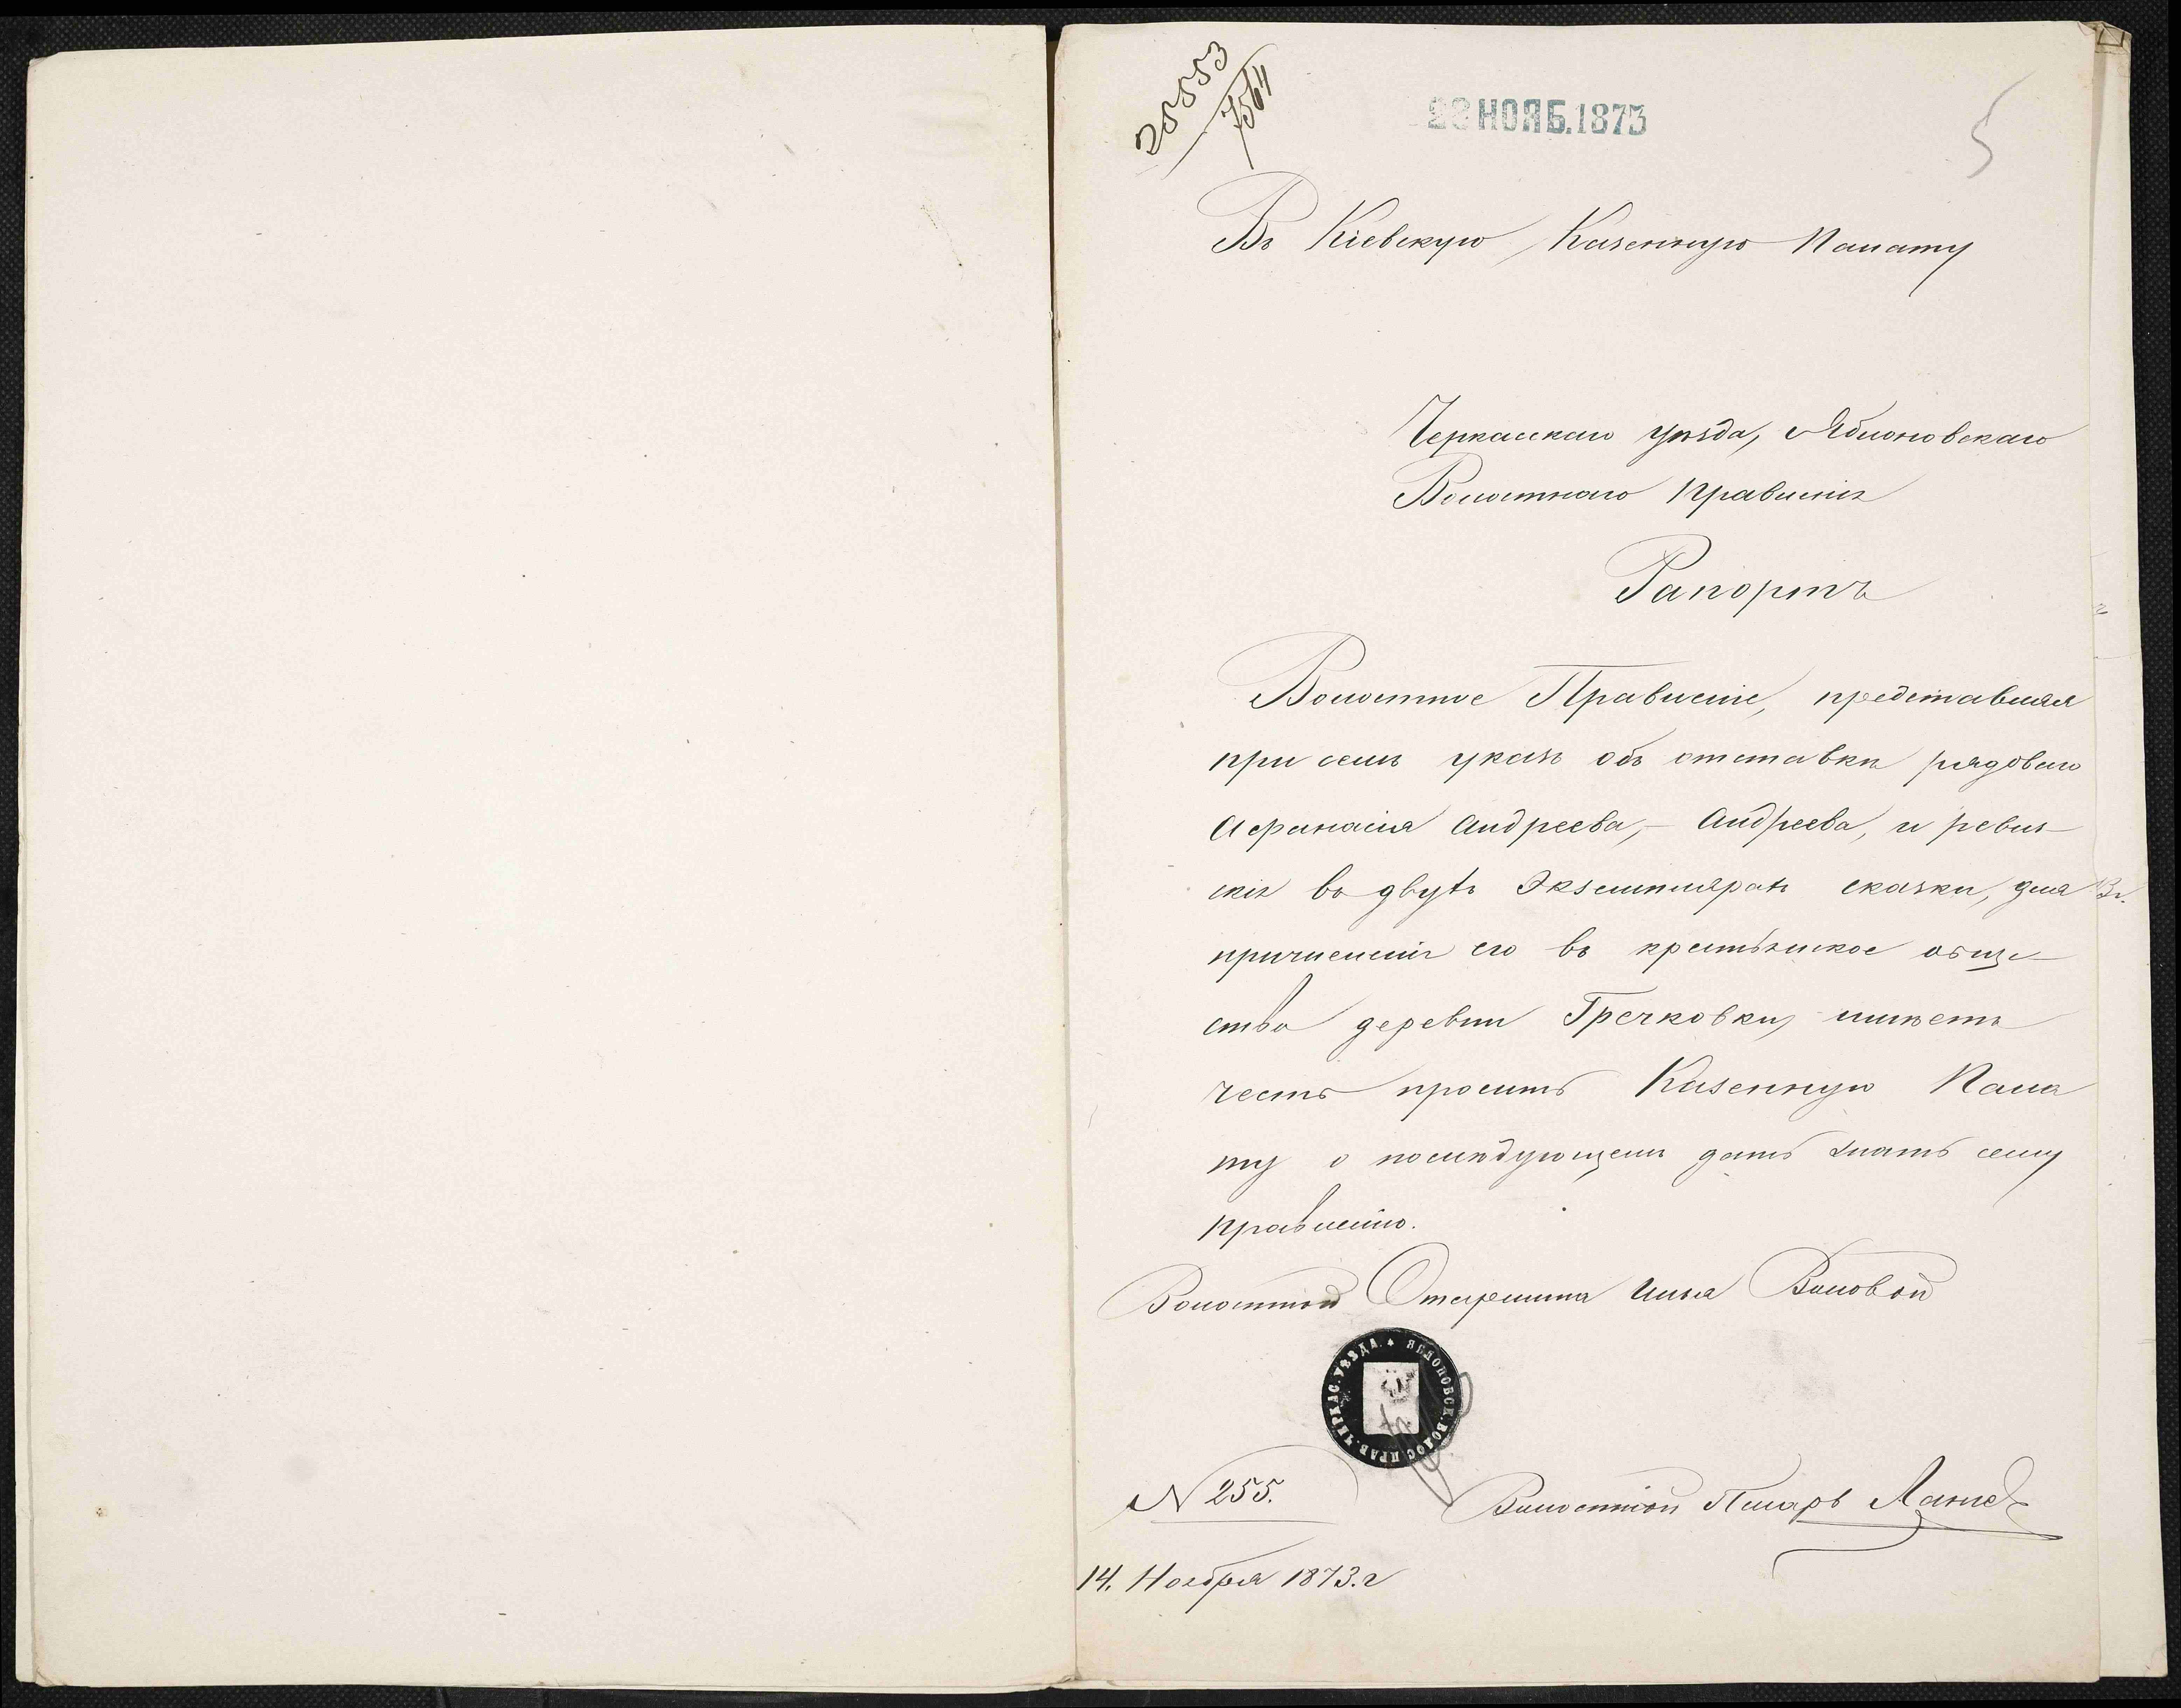 20553
7564
23 НОЯБ.1873
5
Въ Кіевскую Казенную Палату
Черкаскаго уѣзда, Яблоновскаго
Волостнаго Правленія
Рапортъ
Волостное Правленіе, представляя
при семъ указъ объ отставкѣ рядоваго
Афанасія Андреева,- Андреева, и ревиз-
скія въ двухъ Экземплярахъ сказки, для
причисленія его въ крестьянское обще-
ство деревни Гречковки, имѣетъ
честь просить Казенную Пала
ту о послѣдующемъ дать знать сему
правленію.
Волостной Старшина Илья Воловой
ЯБЛОНОВСК. ВОЛОС. ПРАВ. ЧЕРКАС. УѢЗДА.
N 255.
Волостной Писарь
14. Ноября 1873.г